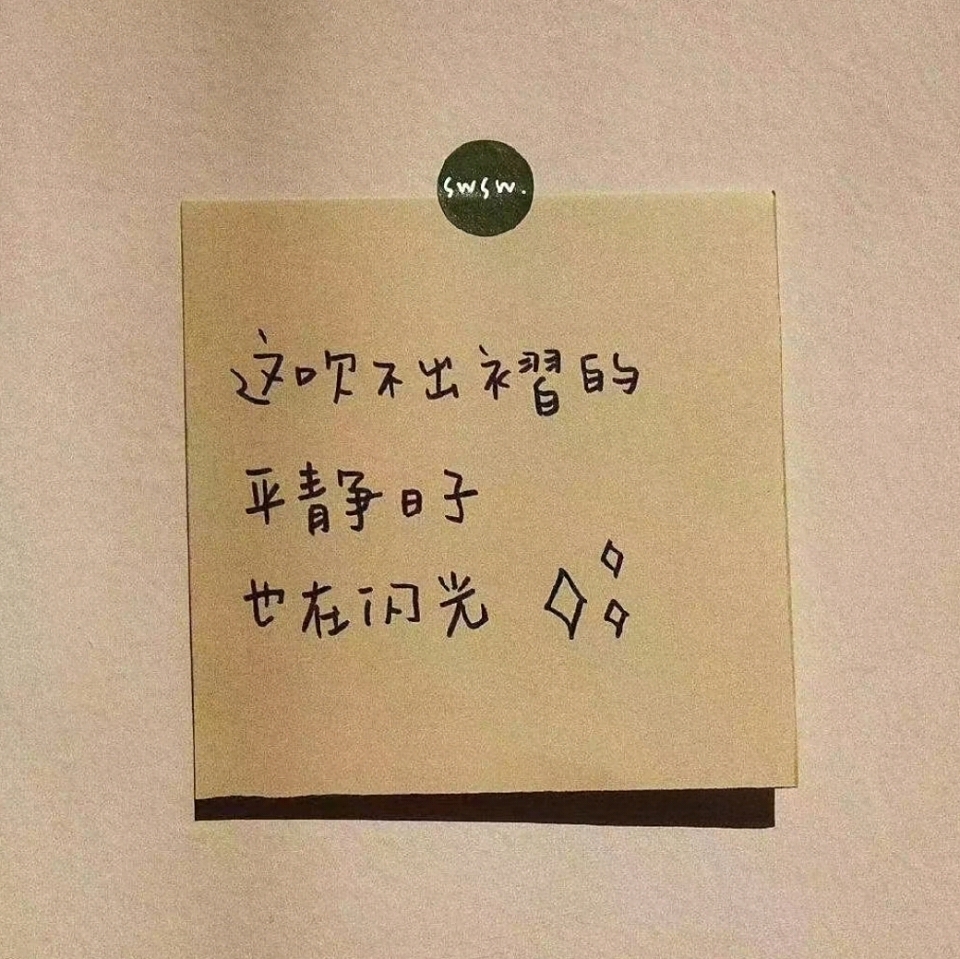 swsw.
这吹不出褶的
平静日子
也在闪光